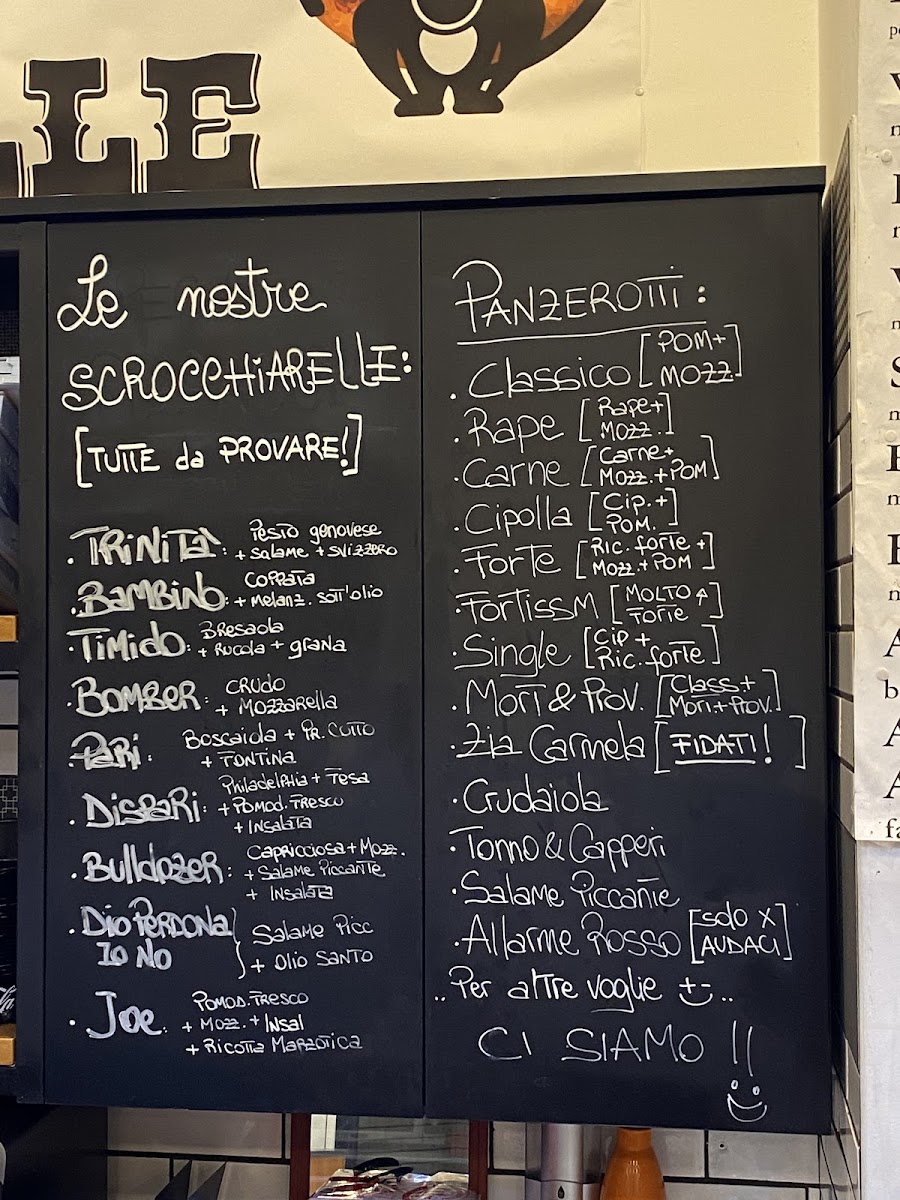 LLE
Le nostre
SCROCCHiARELLE:
[TUTTE da PROVARE!]
. TRiNiTà: Pesto genovese
+ salame + svizzero
. BaMBiNo: COPPATA
+ Melanz. sott'olio
. TiMiDo: Bresaola
+ Rucola + grana
. BOMBER: CRUDO
+ MOZZARella
. PaRi: Boscaiola + PR. COTTO
+ FONTiNA
. DisPaRi: Philadelphia + Tesa
+ POMOD. FRESCO
+ INSalata
. Bulldozer: Capricciosa + Mozz.
+ Salame Piccante
+ Insalata
. Dio PERDONA
Io No
Salame Picc
+ Olio SANTO
. Joe: POMOD. FRESCO
+ MOZZ. + INSal
+ RiCOTTa MaRZOTiCa
PANZEROTTi:
. Classico [POM+
MOZZ]
. Rape [Rape+
MOZZ.]
. Carne [Carne+
MOZZ.+POM]
. Cipolla [Cip.+
POM.]
. Forte [Ric. forte +
Mozz.+ POM]
. FortissM [MOLTO
Forte]
. Single [Cip +
Ric. forte]
. Mort & Prov. [Class.+
Mort.+Prov.]
. Zia Carmela [FIDATI!]
. Crudaiola
. Tonno & Capperi
. Salame Piccante
. Allarme Rosso [solo X
AUDACI]
.. Per altre voglie ..
Ci SiAMO !!